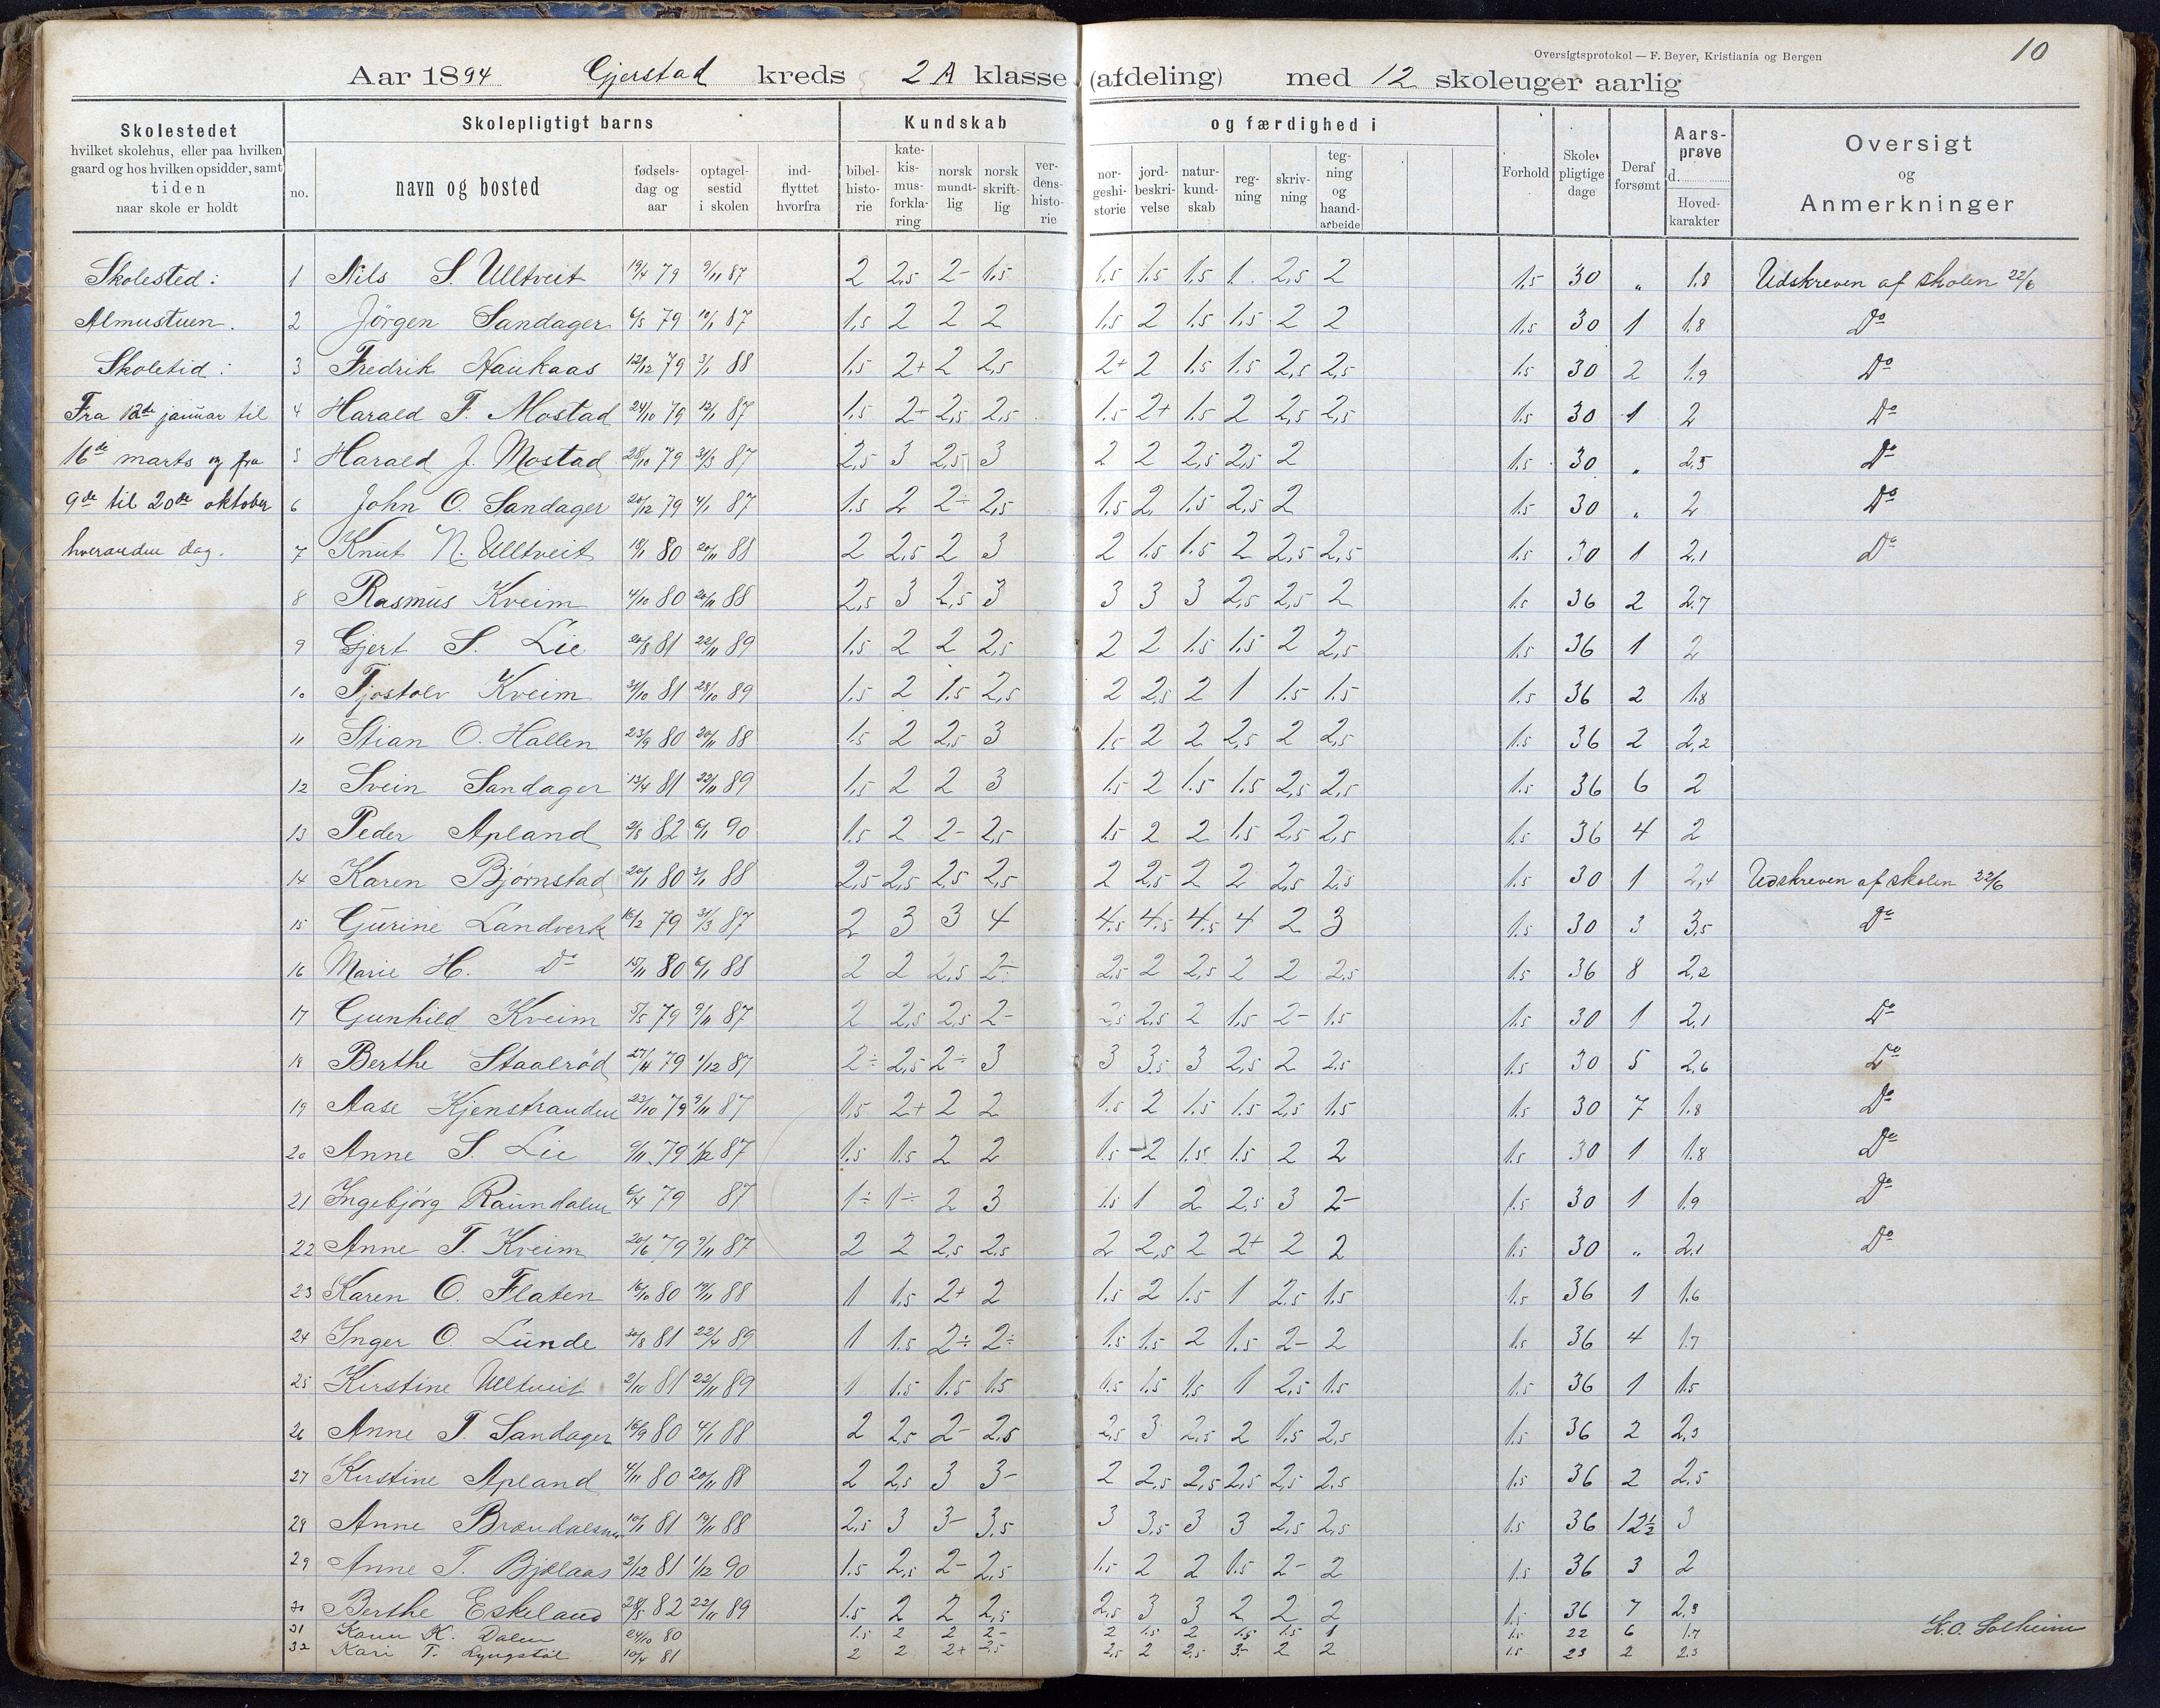 Oversigtsprotokol — F. Beyer, Kristiania og Bergen
10
Aar 1894 Gjerstad kreds 2 A klasse (afdeling) med 12 skoleuger aarlig
Skolestedet
hvilket skolehus, eller paa hvilken
gaard og hos hvilken opsidder, samt
tiden
naar skole er holdt
Skolepligtigt barns
no. navn og bosted
fødsels-
dag og
aar
optagel-
sestid
i skolen
ind-
flyttet
hvorfra
Kundskab og færdighed i
bibel-
histo-
rie
kate-
kis-
mus-
forkla-
ring
norsk
mundt-
lig
norsk
skrift-
lig
ver-
dens-
histo-
rie
nor-
geshi-
storie
jord-
beskri-
velse
natur-
kund-
skab
reg-
ning
skriv-
ning
teg-
ning
og
haand-
arbeide
Forhold
Skole-
pligtige
dage
Deraf
forsømt
Aars-
prøve
d.
Hoved-
karakter
Oversigt
og
Anmerkninger
Skolested:
Almustuen.
Skoletid:
Fra 12de januar til
16de marts og fra
9de til 20de oktober
hveranden dag.
1 Nils S. Ulltveit 19/4 79 9/11 87 2 2,5 2- 1.5 1.5 1.5 1.5 1 2,5 2 1.5 30 " 1.8 Udskreven af skolen 22/6
2 Jörgen Sandager 6/5 79 10/1 87 1,5 2 2 2 1.5 2 1.5 1.5 2 2 1.5 30 1 1.8 Do
3 Fredrik Haukaas 12/12 79 3/1 88 1.5 2+ 2 2,5 2+ 2 1.5 1.5 2,5 2,5 1.5 30 2 1.9 Do
4 Harald F. Mostad 24/10 79 12/1 87 1.5 2+ 2,5 2,5 1.5 2+ 1.5 2 2,5 2,5 1.5 30 1 2 Do
5 Harald J. Mostad 28/10 79 31/3 87 2,5 3 2,5 3 2 2 2,5 2,5 2 1.5 30 " 2.5 Do
6 John O. Sandager 20/12 79 4/1 87 1.5 2 2÷ 2,5 1.5 2 1.5 2,5 2 1.5 30 " 2 Do
7 Knut N. Ulltveit 18/1 80 20/11 88 2 2,5 2 3 2 1.5 1.5 2 2,5 2,5 1.5 30 1 2,1 Do
8 Rasmus Kveim 4/10 80 20/11 88 2,5 3 2,5 3 3 3 3 2,5 2,5 2 1.5 36 2 2.7
9 Gjert S. Lie 20/8 81 22/11 89 1.5 2 2 2,5 2 2 1.5 1.5 2 2,5 1.5 36 1 2
10 Tjostolv Kveim 31/10 81 28/10 89 1.5 2 1.5 2,5 2 2,5 2 1 1.5 1.5 1.5 36 2 1.8
11 Stian O. Hallen 23/9 80 20/11 88 1.5 2 2,5 3 1.5 2 2 2,5 2 2,5 1.5 36 2 2,2
12 Svein Sandager 13/4 81 22/11 89 1,5 2 2 3 1.5 2 1.5 1.5 2,5 2,5 1.5 36 6 2
13 Peder Apland 2/8 82 6/1 90 1.5 2 2- 2,5 1.5 2 2 1.5 2,5 2,5 1.5 36 4 2
14 Karen Björnstad 20/1 80 3/1 88 2,5 2,5 2,5 2,5 2 2,5 2 2 2,5 2,5 1.5 30 1 2,4 Udskreven af skolen 22/6
15 Gurine Landverk 16/2 79 31/3 87 2 3 3 4 4.5 4.5 4.5 4 2 3 1.5 30 3 3,5 Do
16 Marie H. Do 15/11 80 6/1 88 2 2 2,5 2÷ 2,5 2 2,5 2 2 2,5 1.5 36 8 2,2
17 Gunhild Kveim 5/5 79 9/11 87 2 2,5 2,5 2- 2,5 2,5 2 1,5 2- 1.5 1.5 30 1 2,1 Do
18 Berthe Staalröd 27/4 79 1/12 87 2÷ 2,5 2÷ 3 3 3.5 3 2,5 2 2.5 1.5 30 5 2,6 Do
19 Aase Kjenstranden 23/10 79 9/11 87 1.5 2+ 2 2 1.5 2 1.5 1.5 2,5 1.5 1.5 30 7 1.8 Do
20 Anne S. Lie 6/11 79 1/12 87 1.5 1.5 2 2 1.5 2 1.5 1.5 2 2 1.5 30 1 1.8 Do
21 Ingebjörg Raundalen 6/4 79 87 1÷ 1÷ 2 3 1.5 1 2 2,5 3 2- 1.5 30 1 1.9 Do
22 Anne T. Kveim 20/6 79 9/11 87 2 2 2,5 2,5 2 2,5 2 2+ 2 2 1.5 30 " 2,1 Do
23 Karen O. Flaten 16/10 80 19/11 88 1 1.5 2+ 2 1.5 2 1.5 1 2.5 1.5 1.5 36 1 1.6
24 Inger O. Lunde 30/8 81 22/4 89 1 1.5 2÷ 2÷ 1.5 1.5 2 1.5 2- 2 1.5 36 4 1.7
25 Kirstine Ulltveit 2/10 81 22/11 89 1 1.5 1.5 1.5 1.5 1.5 1.5 1 2,5 1.5 1.5 36 1 1.5
26 Anne T. Sandager 16/9 80 4/1 88 2 2,5 2- 2,5 2,5 3 2,5 2 1.5 2,5 1.5 36 2 2,3
27 Kirstine Apland 4/11 80 20/11 88 2 2,5 3 3- 2 2,5 2,5 2,5 2,5 2.5 1.5 36 2 2,5
28 Anne 10/1 81 19/11 88 2,5 3 3- 3,5 3 3,5 3 3 2,5 2,5 1.5 36 12½ 3
29 Anne T. Bjelaas 2/12 81 1/12 90 1.5 2,5 2- 2,5 1.5 2 2 1.5 2- 2 1.5 36 3 2
30 Berthe Eskeland 28/5 82 22/11 89 1.5 2 2 2,5 2,5 3 3 2 2 2 1.5 36 7 2,3
31 Karen K. Dalen 24/10 80 1.5 2 2 2- 2 1.5 2 1.5 1.5 1 1.5 22 6 1.7
32 Kari T. Lyngstöl 10/4 81 2 2 2+ 2,5 2,5 2 2,5 3- 2 2 1.5 23 2 2.3
K. O. Solheim